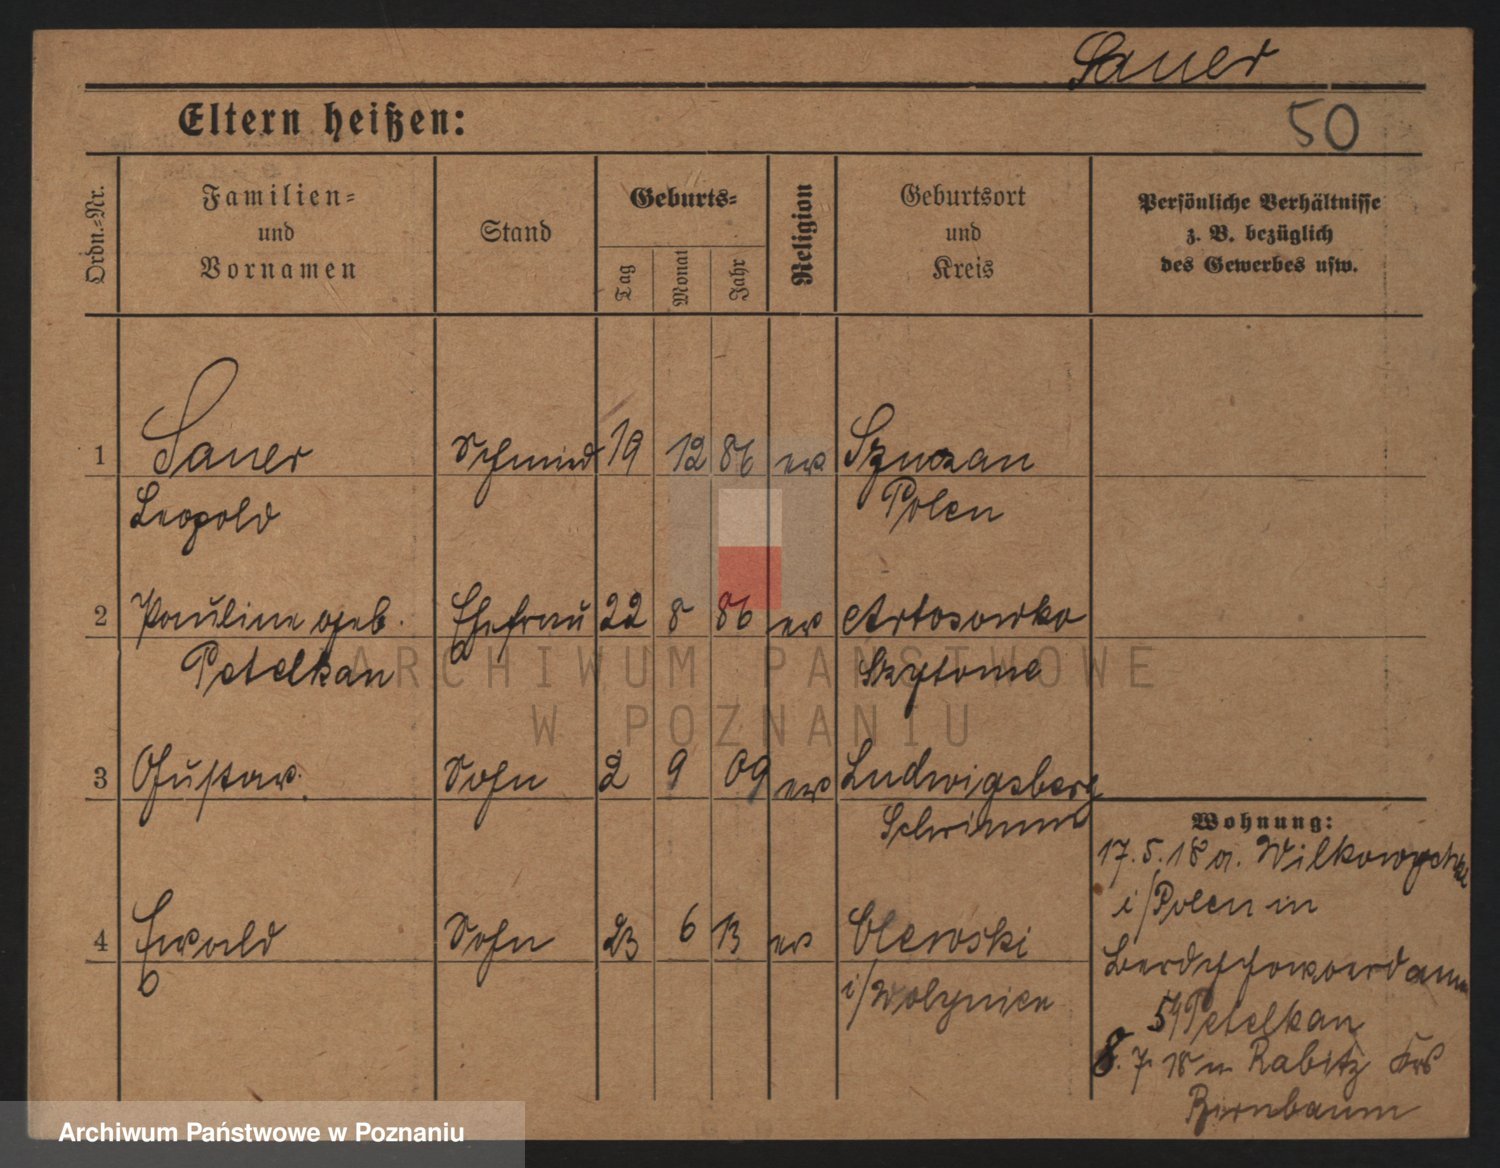 Sauer
Eltern heißen:
50
Ordn.-Nr.
Familien-
und
Vornamen
Stand
Geburts-
Tag
Monat
Jahr
Religion
Geburtsort
und
Kreis
Persönliche Verhältnisse
z. B. bezüglich
des Gewerbes usw.
1 Sauer Schmied 19 12 86 ev
Leopold Polen
2 Pauline geb. Ehefrau 22 8 86 ev
Petelkan
3 Gustav. Sohn 2 9 09 ev Ludwigsberg
Schrimm
Wohnung:
17. 5. 18 a.
i/Polen in
4 Ewald Sohn 23 6 13 ev Olewski
i/Wolynien
5/Petelkan
8. 7. 18 n. Rabitz Krs
Birnbaum
ARCHIWUM PAŃSTWOWE
W POZNANIU
Archiwum Państwowe w Poznaniu